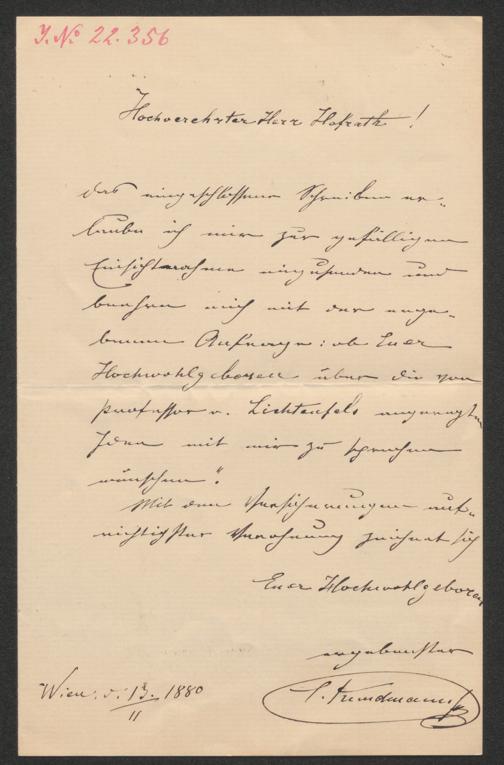 I. № 22.356
Hochverehrter Herr Hofrath!
Das eingeschlossene Schreiben er-
laube ich mir zur gefälligen
Einsichtnahme einzusenden und
beehre mich mit der erge-
benen Anfrage: ob Euer
Hochwohlgeboren über die von
Professor v. Lichtenfels angeregten
Ideen mit mir zu sprechen
wünschen".
Mit den Versicherungen auf-
richtigster Verehrung zeichnet sich
Euer Hochwohlgeboren
ergebenster
C. Kundmann
Wien: d. 13. 1880
11